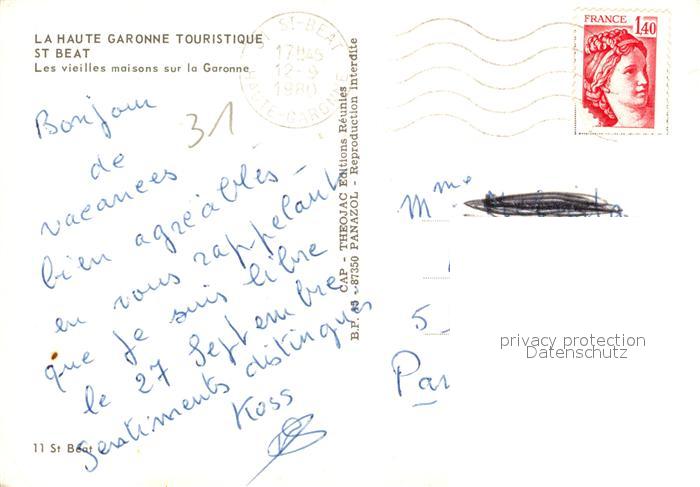 LA HAUTE GARONNE TOURISTIQUE
ST BEAT
Les vieilles maisons sur la Garonne
31 ST-BEAT
17H45
12-9
1980
HAUTE-GARONNE
FRANCE
1,40
31
Bonjour
de
vacances
bien agréables -
en vous rappelant
que je suis libre
le 27 Septembre.
Sentiments distingués
Koss
11 St Béat
CAP - THEOJAC Editions Réunies
B.P. 45 - 87350 PANAZOL - Reproduction Interdite
Mme
5
Par
privacy protection
Datenschutz